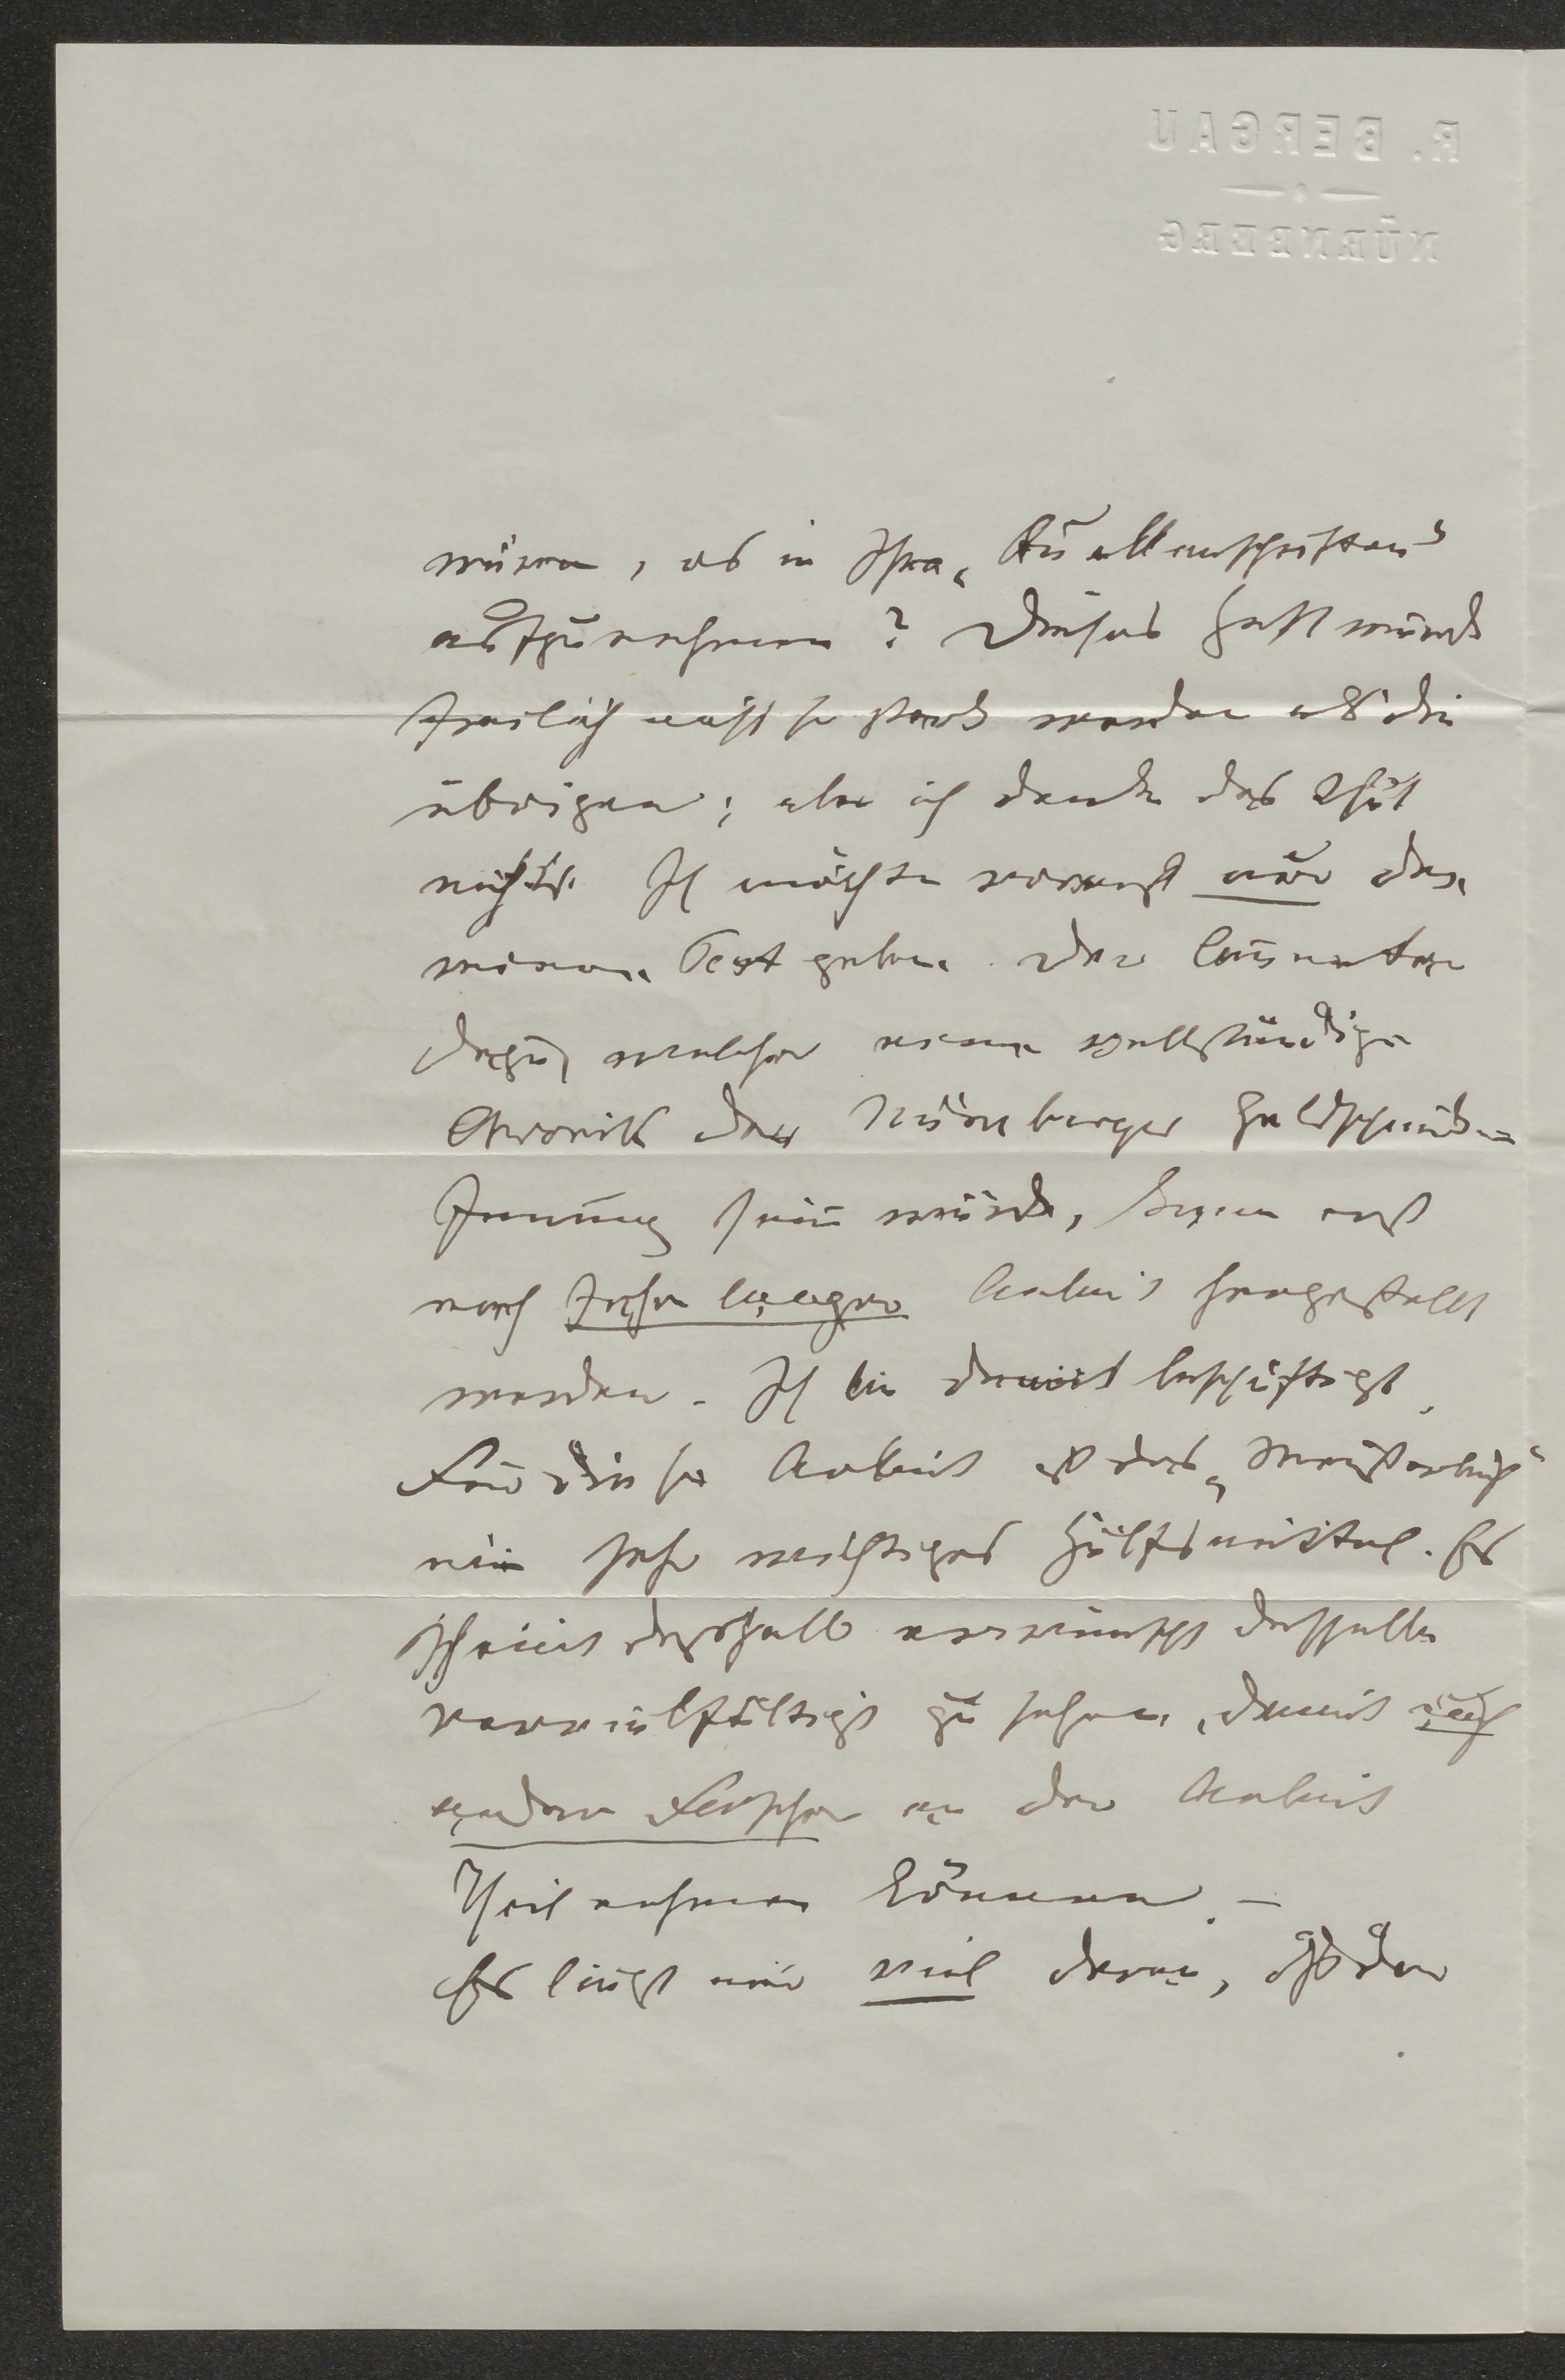 R. BERGAU
NÜRNBERG
wären, es in Ihre „Quellenschriften"
aufzunehmen? Dieses Heft würde
freilich nicht so stark werden als die
übrigen; aber ich denke das thut
nichts. Ich möchte vorerst nur den
reinen Text geben. Der Commentar
dazu, welcher eine vollständige
Chronik der Nürnberger Goldschmiede-
Innung sein würde, kann erst
nach Jahre langer Arbeit hergestellt
werden. Ich bin damit beschäftigt.
Für diese Arbeit ist das „Meisterbuch"
ein sehr wichtiges Hülfsmittel. Es
scheint deshalb erwünscht dasselbe
vervielfältigt zu sehen, damit auch
andere Forscher an der Arbeit
Theil nehmen können. –
Es liegt mir viel daran, daß der